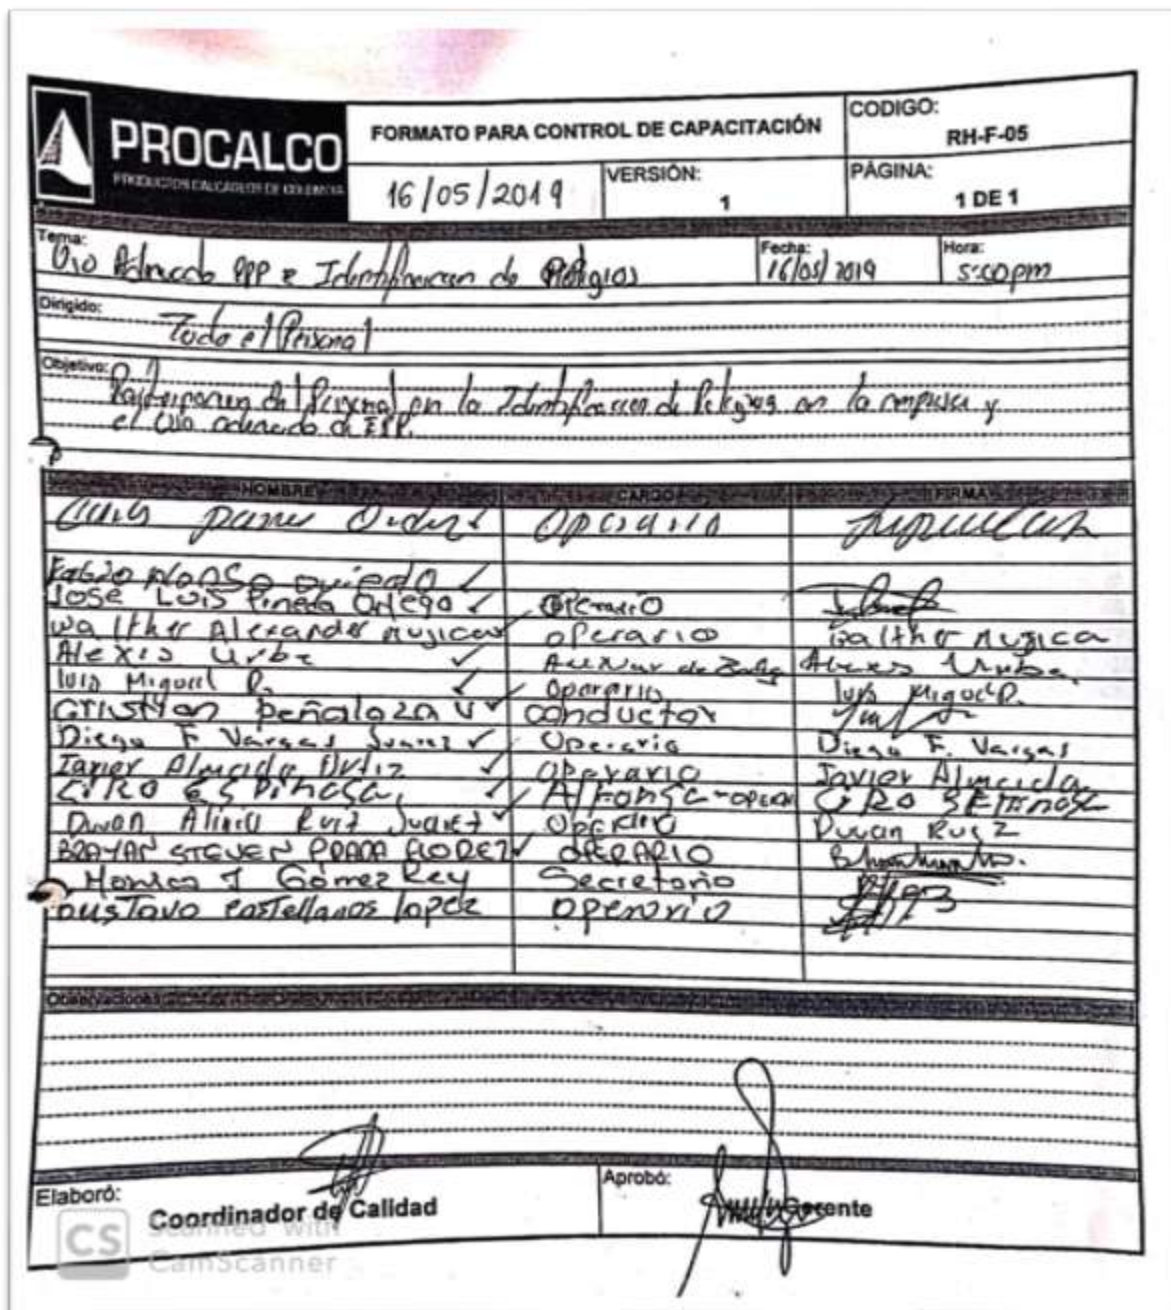 PROCALCO
PRODUCTOS CALCAREOS DE COLOMBIA
FORMATO PARA CONTROL DE CAPACITACIÓN
CODIGO:
RH-F-05
16/05/2019
VERSIÓN:
1
PÁGINA:
1 DE 1
Tema:
Uso Adecuado EPP e Identificacion de Peligros
Fecha:
16/05/2019
Hora:
5:00pm
Dirigido:
Todo el Personal
Objetivo:
del Personal en la Identificacion de Peligros en la empresa y
el Uso adecuado de EPP.
NOMBRE CARGO FIRMA
Operario
Fabio Alonso Oviedo ✓
Jose Luis Pineda Ortega ✓ Operario
Walther Alexander Mujica ✓ operario Walther Mujica
Alexis Urbe ✓ Auxiliar de Alexis
luis Miguel P. ✓ Operario luis Miguel P.
Cristian Peñaloza V ✓ conductor
Diego F Vargas Suarez ✓ Operario Diego F. Vargas
Javier Almeida Ortiz ✓ Operario Javier Almeida
CIRO ESPINOSA ✓ CIRO
Duvan Alirio Ruiz Suarez ✓ Operario Duvan Ruiz
BRAYAN STEVEN PRADA FLOREZ ✓ OPERARIO
Monica J Gómez Rey Secretaria
Gustavo Castellanos Lopez Operario
Observaciones
Elaboró:
Coordinador de Calidad
Aprobó:
Gerente
CS
Scanned with
CamScanner